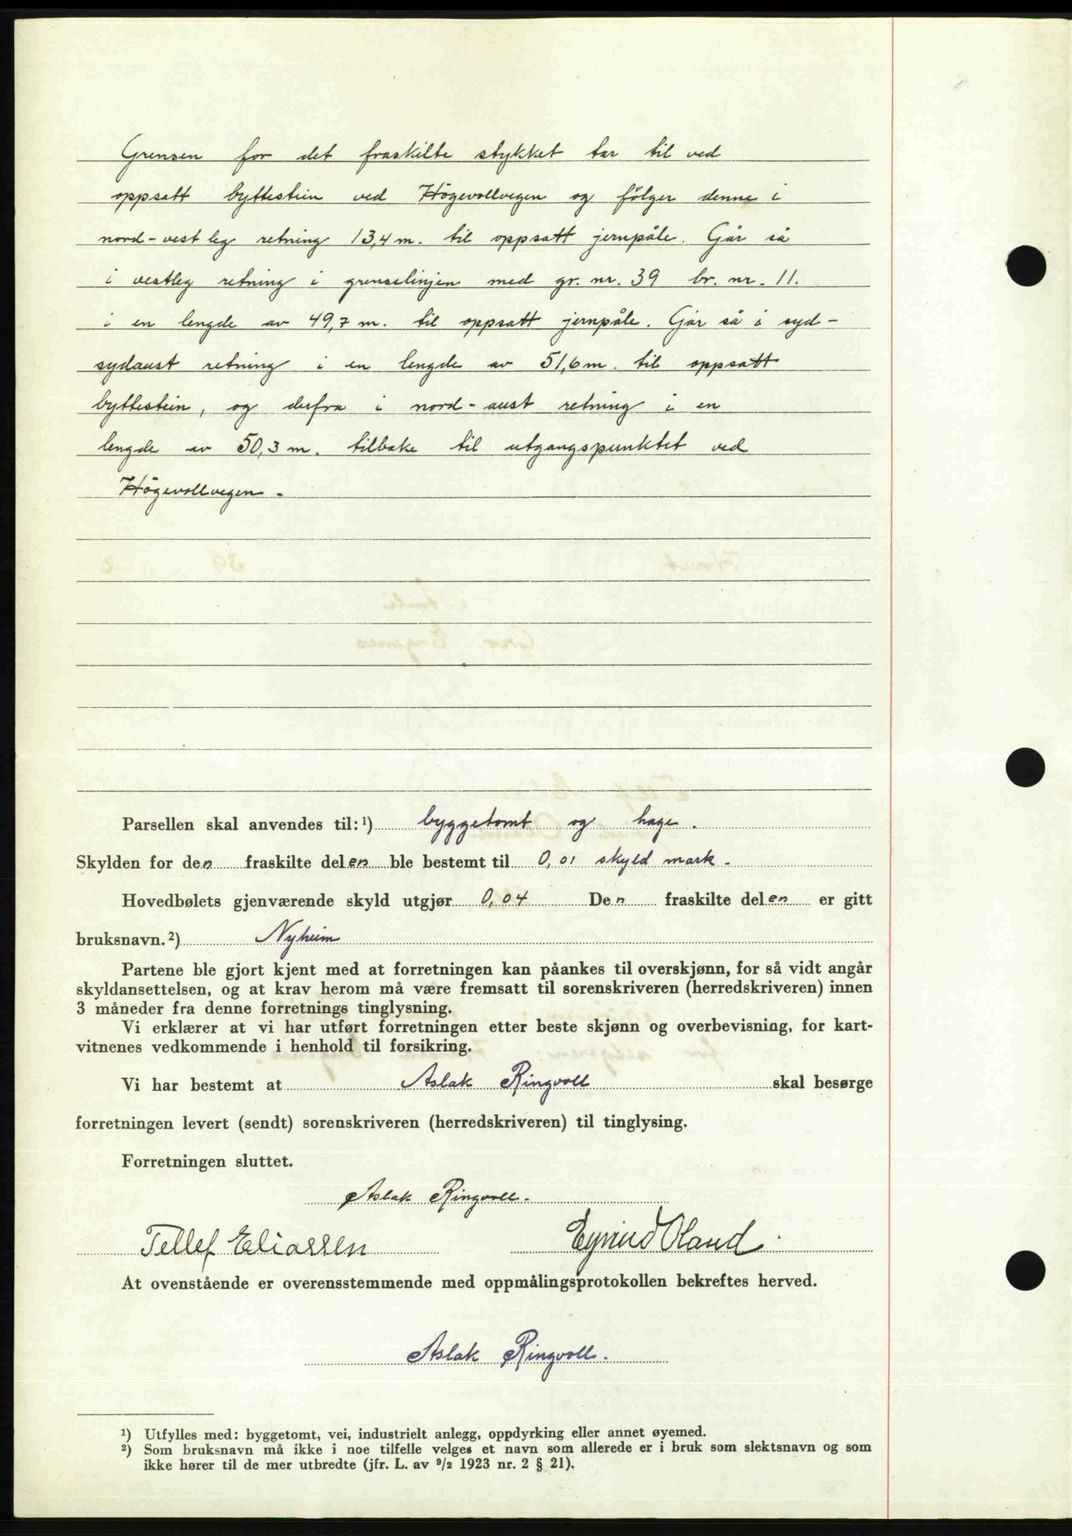 Grensen for det fraskilte stykket tar til ved
oppsatt byttestein ved Högevollvegen og fölger denne i
nord-vestleg retning 13,4 m. til oppsatt jernpåle. Går så
i vestleg retning i grenselinjen med gr. nr. 39 br. nr. 11.
i en lengde av 49,7 m. til oppsatt jernpåle. Går så i syd-
sydaust retning i en lengde av 51,6 m. til oppsatt
byttestein, og derfra i nord-aust retning i en
lengde av 50,3 m. tilbake til utgangspunktet ved
Högevollvegen.
Parsellen skal anvendes til: ¹) byggetomt og hage.
Skylden for den fraskilte delen ble bestemt til 0,01 skyld mark.
Hovedbølets gjenværende skyld utgjør 0,04 Den fraskilte delen er gitt
bruksnavn. ²) Nyheim
Partene ble gjort kjent med at forretningen kan påankes til overskjønn, for så vidt angår
skyldansettelsen, og at krav herom må være fremsatt til sorenskriveren (herredskriveren) innen
3 måneder fra denne forretnings tinglysning.
Vi erklærer at vi har utført forretningen etter beste skjønn og overbevisning, for kart-
vitnenes vedkommende i henhold til forsikring.
Vi har bestemt at Aslak Ringvoll skal besørge
forretningen levert (sendt) sorenskriveren (herredskriveren) til tinglysing.
Forretningen sluttet.
Aslak Ringvoll.
Tellef Eliassen Eyvind Oland.
At ovenstående er overensstemmende med oppmålingsprotokollen bekreftes herved.
Aslak Ringvoll.
¹) Utfylles med: byggetomt, vei, industrielt anlegg, oppdyrking eller annet øyemed.
²) Som bruksnavn må ikke i noe tilfelle velges et navn som allerede er i bruk som slektsnavn og som
ikke hører til de mer utbredte (jfr. L. av ⁹/₂ 1923 nr. 2 § 21).